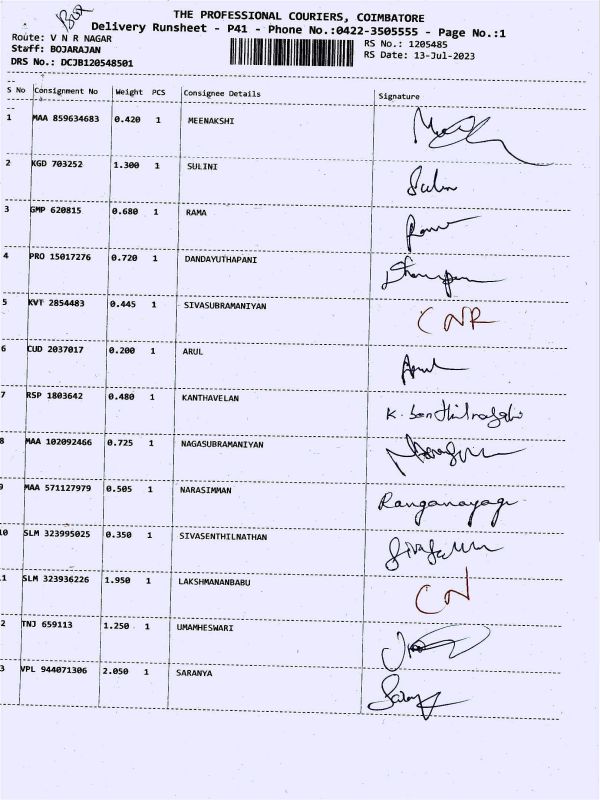 THE PROFESSIONAL COURIERS, COIMBATORE
Delivery Runsheet - P41 - Phone No.:0422-3505555 - Page No.:1
Route: V N R NAGAR RS No.: 1205485
Staff: BOJARAJAN RS Date: 13-Jul-2023
DRS No.: DCJB120548501
S No Consignment No Weight PCS Consignee Details Signature
1 MAA 859634683 0.420 1 MEENAKSHI
2 KGD 703252 1.300 1 SULINI
3 GMP 620815 0.680 1 RAMA
4 PRO 15017276 0.720 1 DANDAYUTHAPANI
5 KVT 2854483 0.445 1 SIVASUBRAMANIYAN CNR
6 CUD 2037017 0.200 1 ARUL Arul
7 RSP 1803642 0.480 1 KANTHAVELAN
8 MAA 102092466 0.725 1 NAGASUBRAMANIYAN
9 MAA 571127979 0.505 1 NARASIMMAN Ranganayagi
10 SLM 323995025 0.350 1 SIVASENTHILNATHAN
1 SLM 323936226 1.950 1 LAKSHMANANBABU CN
2 TNJ 659113 1.250 1 UMAMHESWARI
3 VPL 944071306 2.050 1 SARANYA